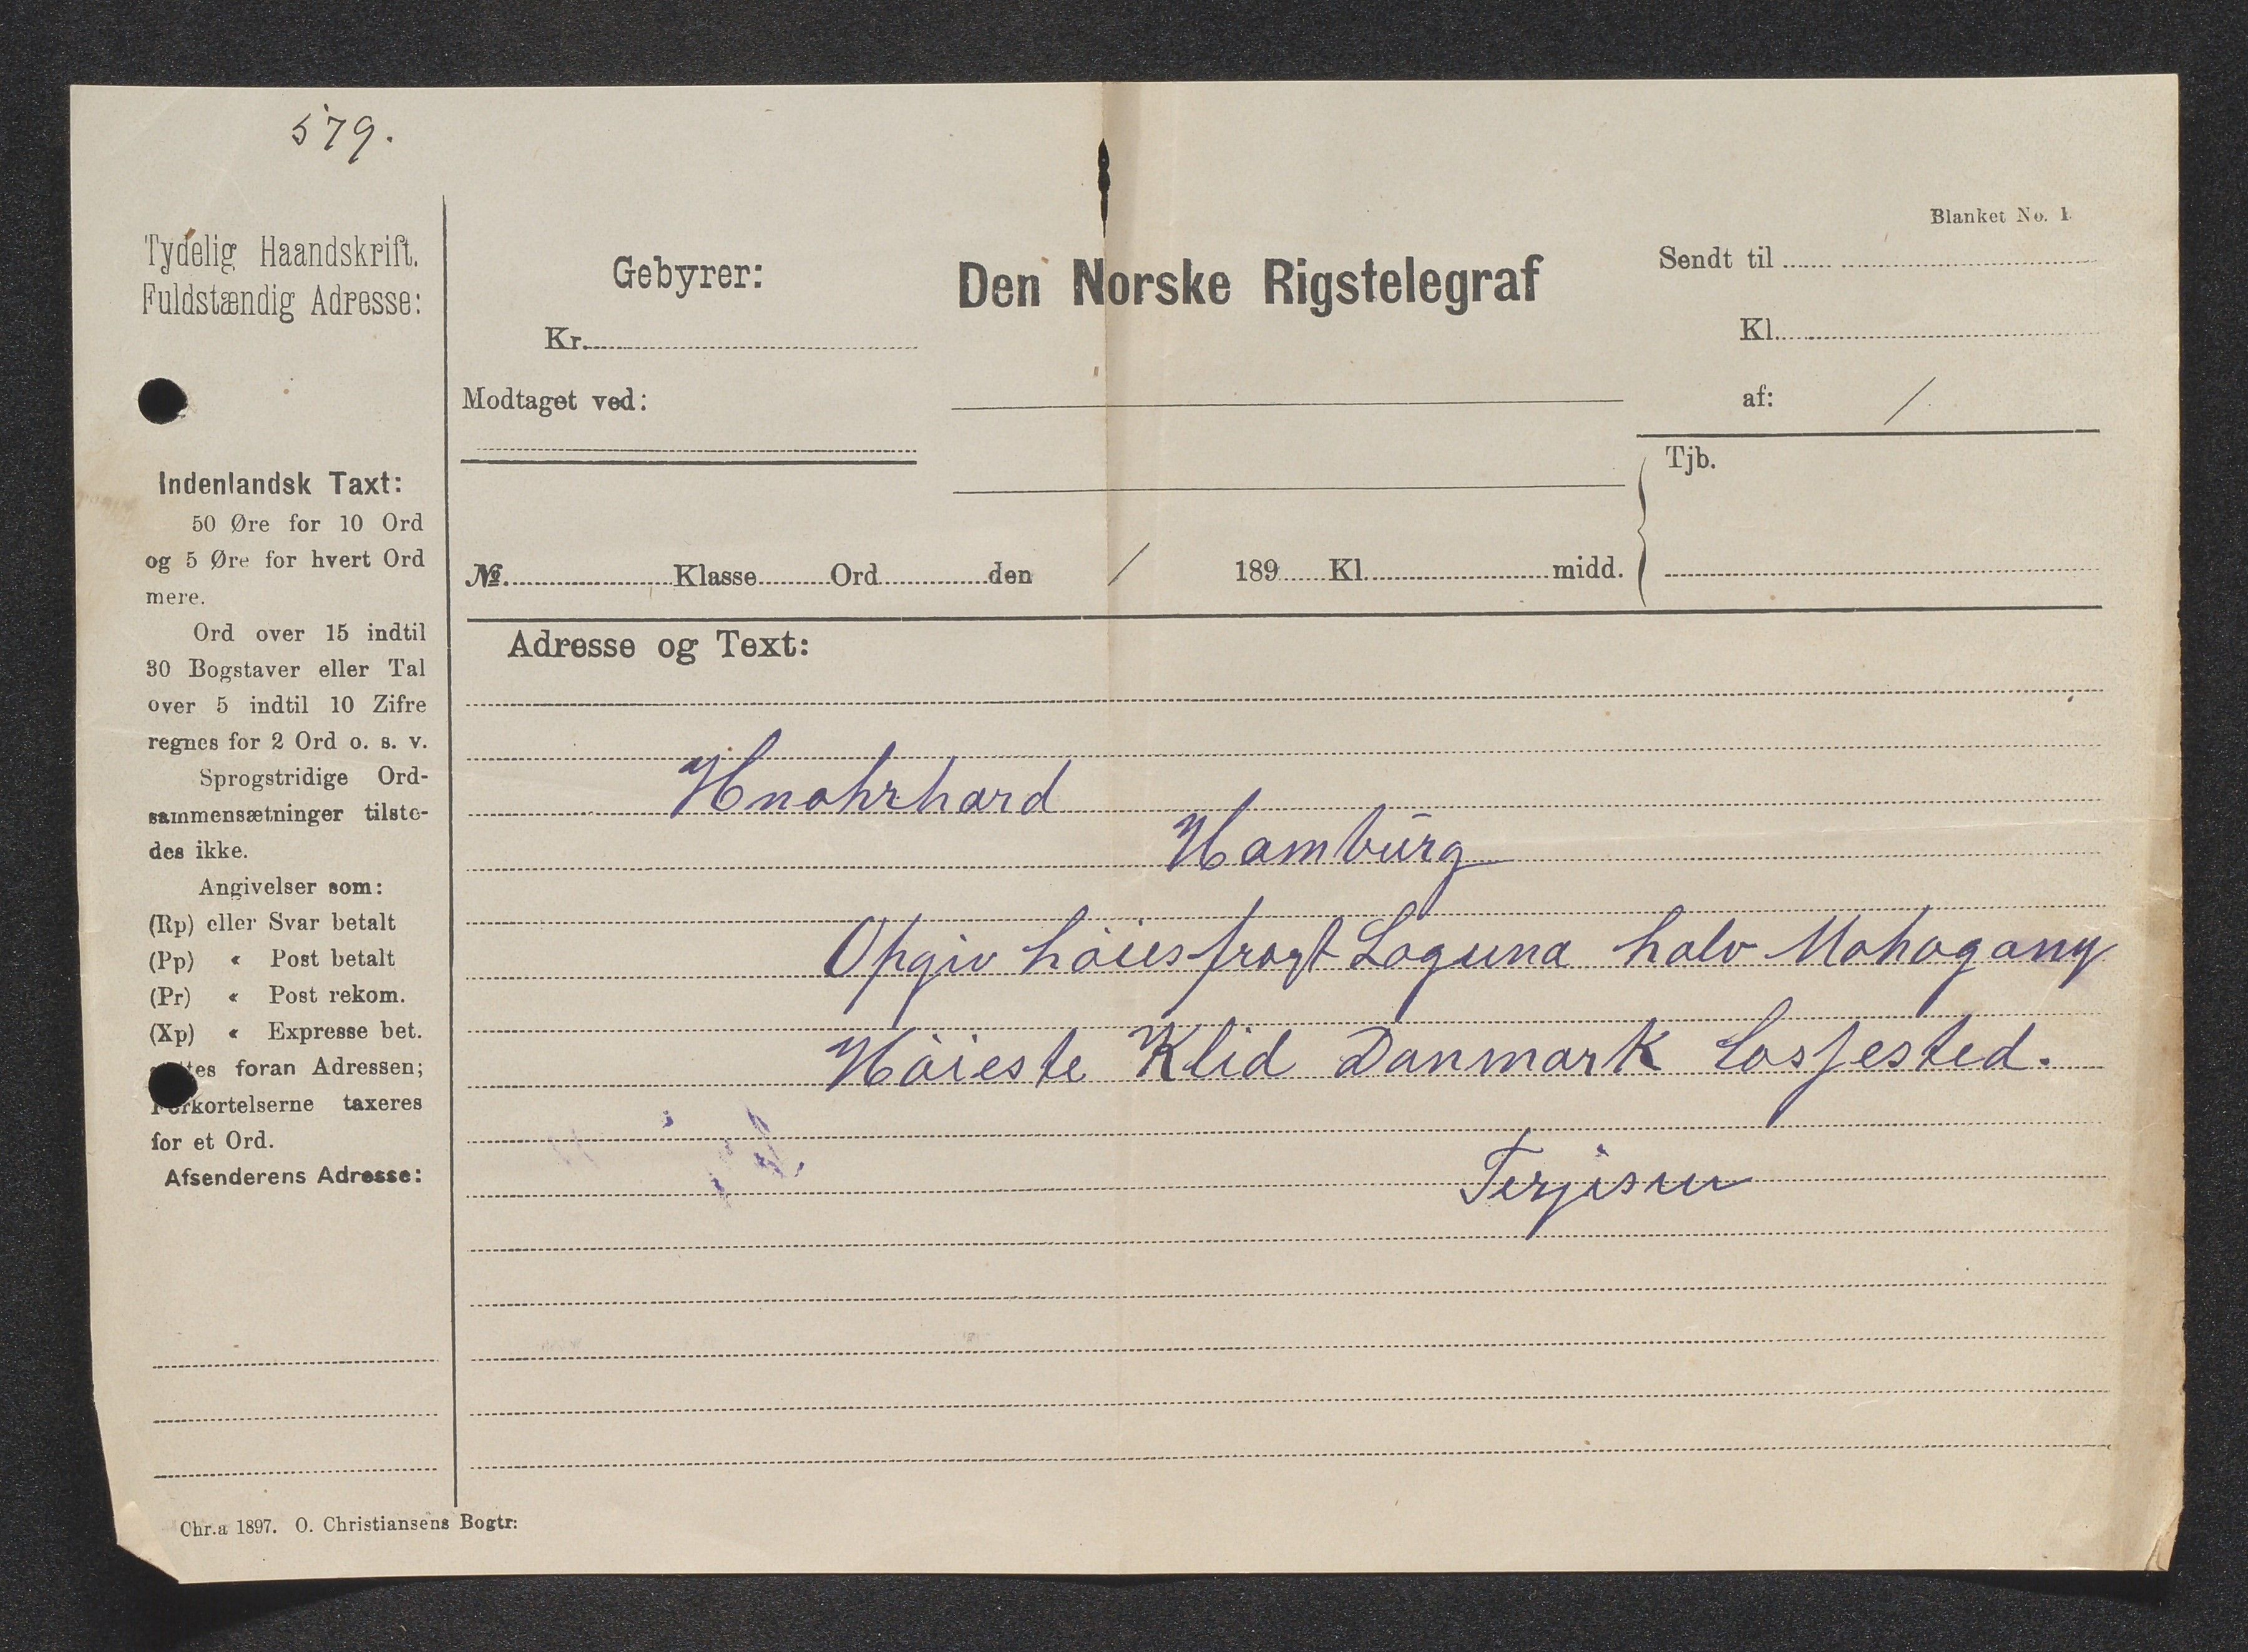 579.
Tydelig Haandskrift.
Fuldstændig Adresse:
Indenlandsk Taxt:
50 Øre for 10 Ord
og 5 Øre for hvert Ord
mere.
Ord over 15 indtil
30 Bogstaver eller Tal
over 5 indtil 10 Zifre
regnes for 2 Ord o. s. v.
Sprogstridige Ord-
sammensætninger tilste-
des ikke.
Angivelser som:
(Rp) eller Svar betalt
(Pp) « Post betalt
(Pr) « Post rekom.
(Xp) « Expresse bet.
foran Adressen;
Forkortelserne taxeres
for et Ord.
Afsenderens Adresse:
Chr.a 1897. O. Christiansens Bogtr:
Gebyrer:
Kr.
Modtaget ved:
Den Norske Rigstelegraf
Blanket No. 1
Sendt til
Kl.
af: /
Tjb.
№ Klasse Ord den / 189 Kl. midd.
Adresse og Text:
Knohrhard
Hamburg
Opgiv høiesfragt Laguna halv Mahogany
Høieste Klid Danmark Lossested.
Terjesen